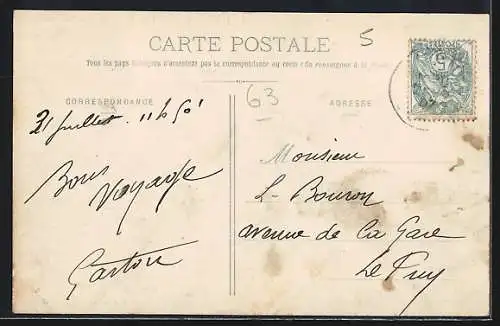 CARTE POSTALE
5
Tous les pays étrangers n'acceptent pas la correspondance au recto (Se renseigner à la poste)
63
CORRESPONDANCE
ADRESSE
21 juillet. 11h 50'
Bons
Voyage
Gaston
Monsieur
L. Bouron
avenue de la Gare
Le Puy